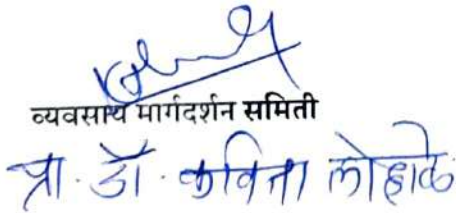 व्यवसाय मार्गदर्शन समिती
प्रा. डॉ. कविता लोहाळे